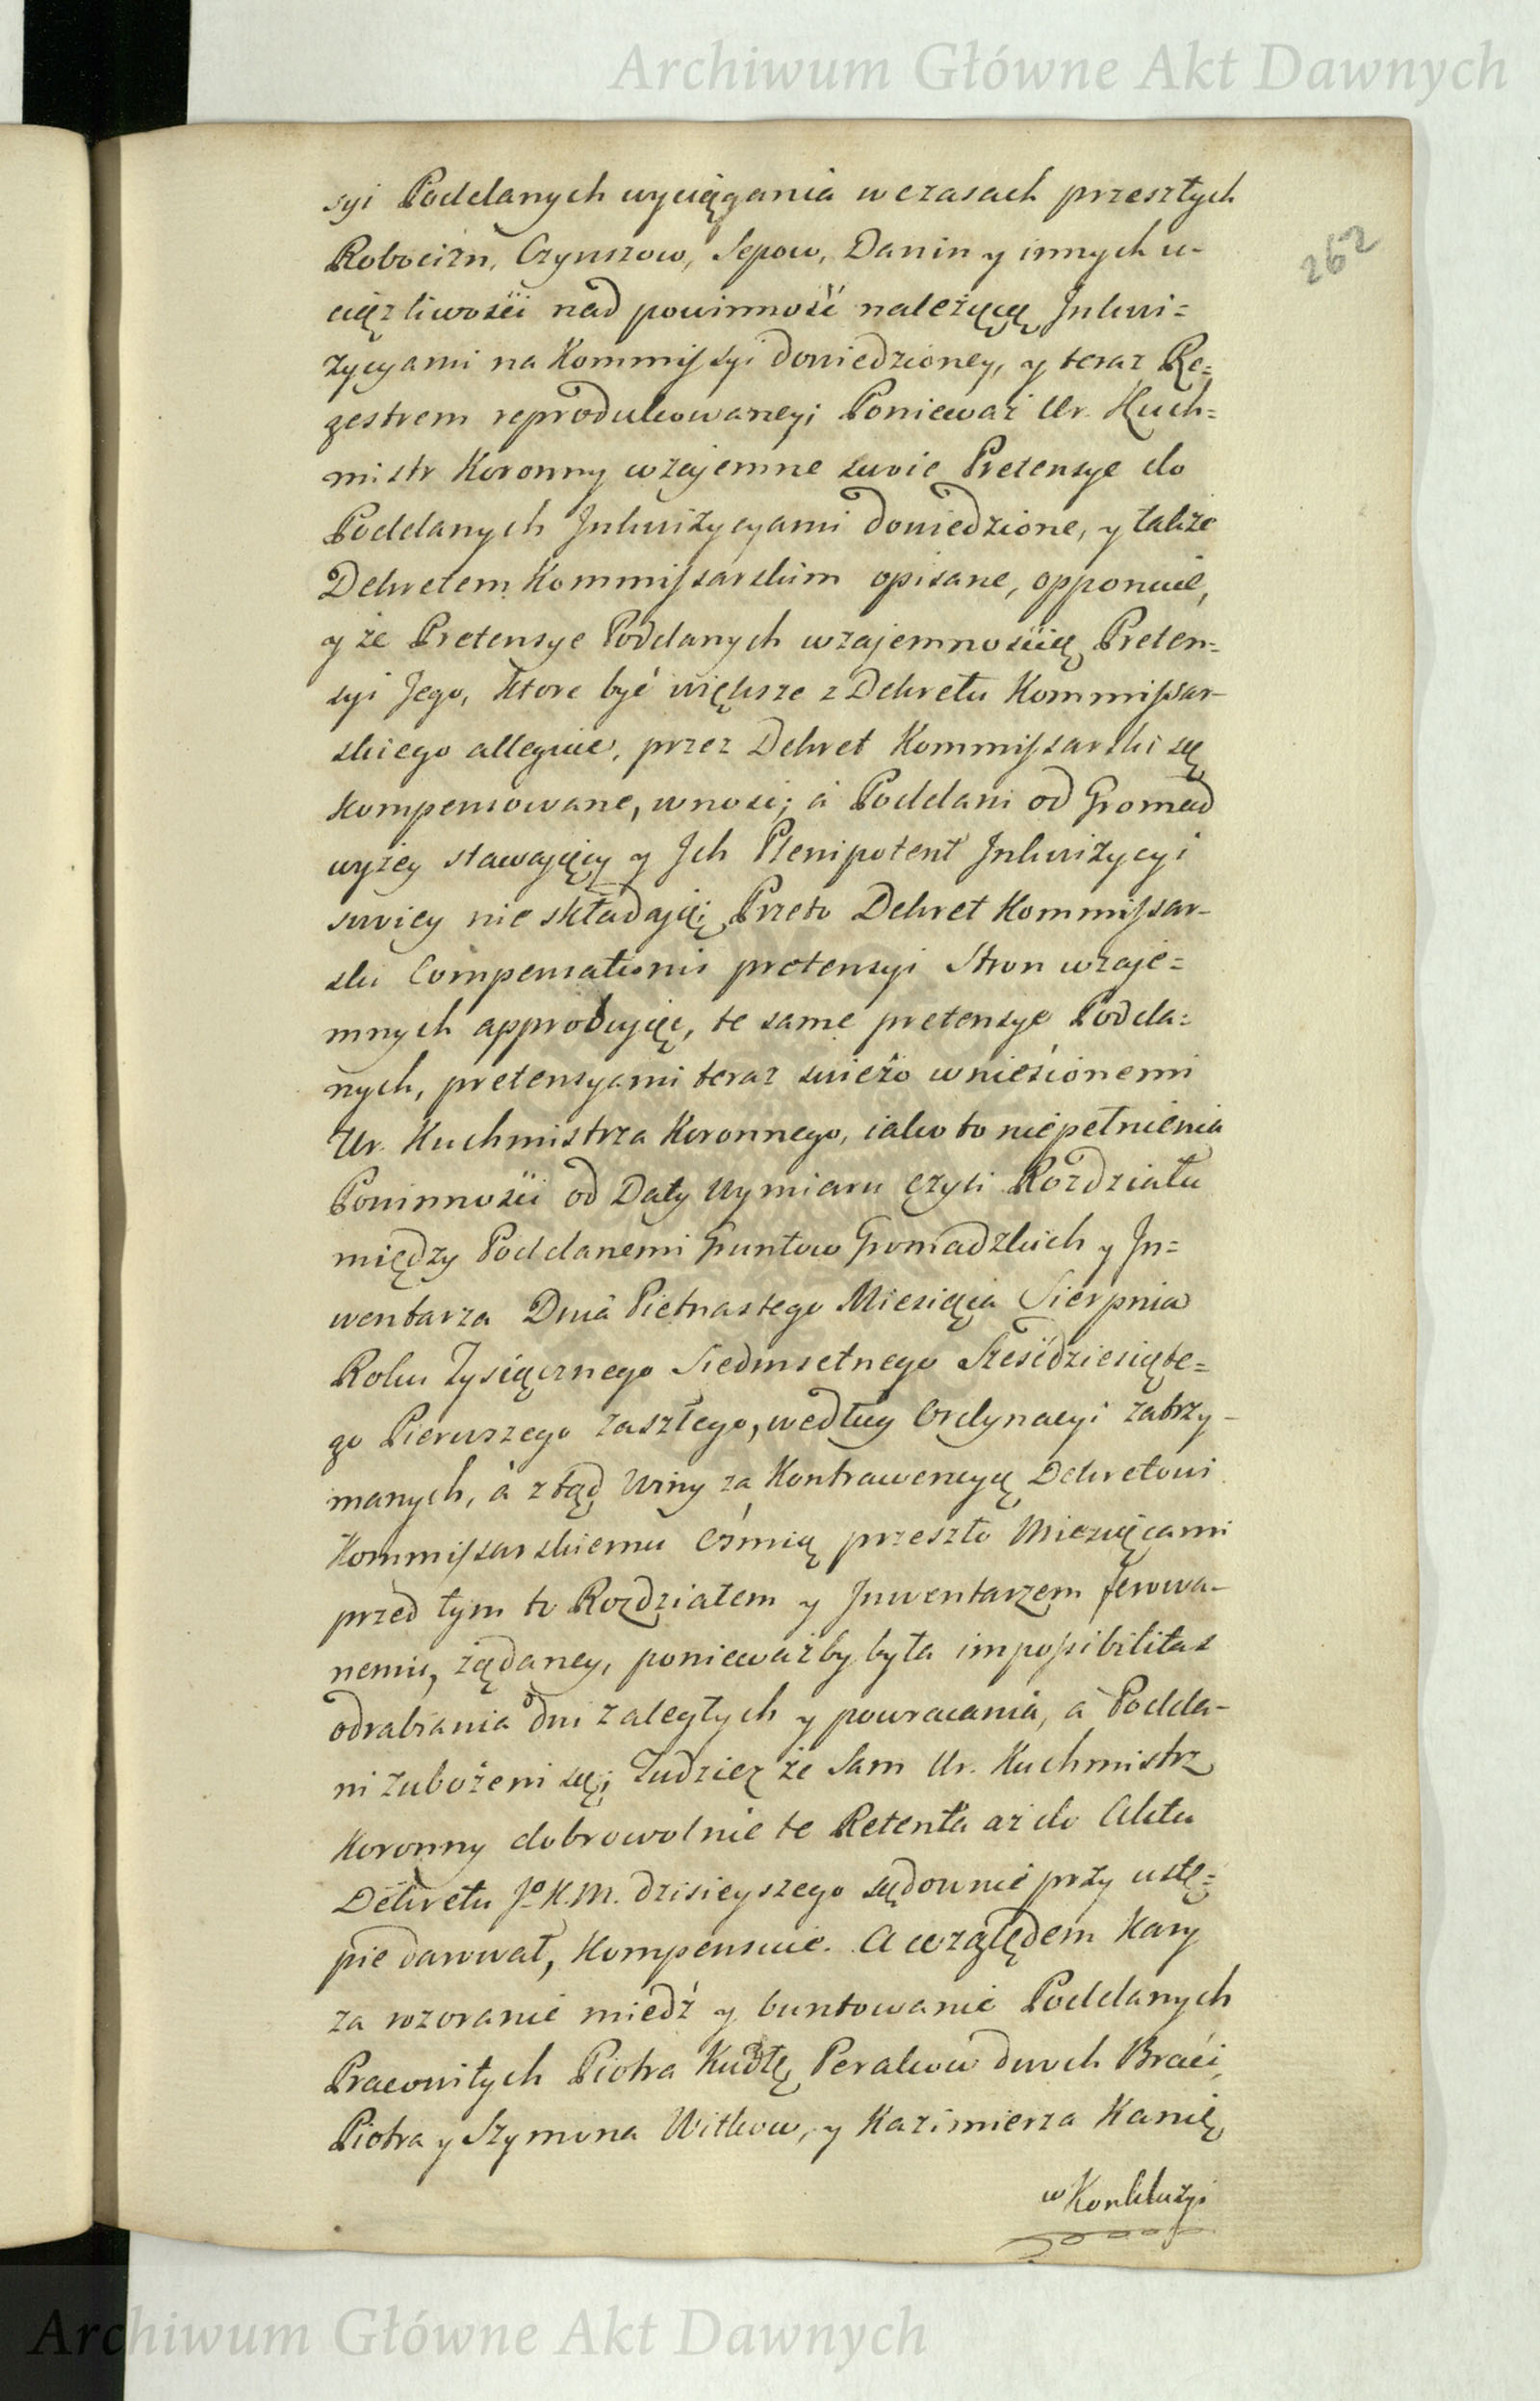 Archiwum Główne Akt Dawnych
262
syi Poddanych wyciągania w czasach przeszłych
Robocizn, Czynszow, Sepow, Danin y innych u-
ciężliwości nad powinność należącą Inkwi=
zycyami na Kommissyi dowiedzioney, y teraz Re=
gestrem reprodukowaney; Ponieważ Ur. Kuch=
mistr Koronny wzajemne swoie Pretensye do
Poddanych Inkwizycyami dowiedzione, y także
Dekretem Kommissarskim opisane, opponuie,
y że Pretensye Poddanych wzajemnością Preten=
syi Jego, ktore być większe z Dekretu Kommissar-
skiego alleguie, przez Dekret Kommissarski są
kompensowane, wnosi; á Poddani od Gromad
wyżey stawaiący y Ich Plenipotent Inkwizycyi
swoiey nie składaią; Przeto Dekret Kommissar-
ski Compensationis pretensyi Stron wzaje=
mnych approbując, te same pretensye Podda=
nych, pretensyami teraz świeżo wniesionemi
Ur. Kuchmistrza Koronnego, iako to niepełnienia
Powinności od Daty Wymiaru czyli Rozdziału
między Poddanemi Gruntow Gromadzkich y In=
wentarza Dnia Pietnastego Miesiąca Sierpnia
Roku Tysiącznego Siedmsetnego Sześćdziesiąte=
go Pierwszego zaszłego, według Ordynacyi zatrzy-
manych, á ztąd Winy za Kontrawencyą Dekretowi
Kommissarskiemu Ośmią przeszło Miesiącami
przed tym to Rozdziałem y Inwentarzem ferowa-
nemu, żądaney, ponieważby była impossibilitas
odrabiania dni zaległych y powracania, á Podda-
ni zubożeni są; Tudzież że Sam Ur. Kuchmistrz
Koronny dobrowolnie te Retenta aż do Aktu
Dekretu Jo K. M. dzisieyszego sądownie przy ustę=
pie darował, Kompensuie. A względem Kary
za rozoranie miedź y buntowanie Poddanych
Pracowitych Piotra Kudłę, Perakow dwoch Braci,
Piotra y Szymona Witkow, y Kazimierza Kanię
w Konkluzyi
Archiwum Główne Akt Dawnych